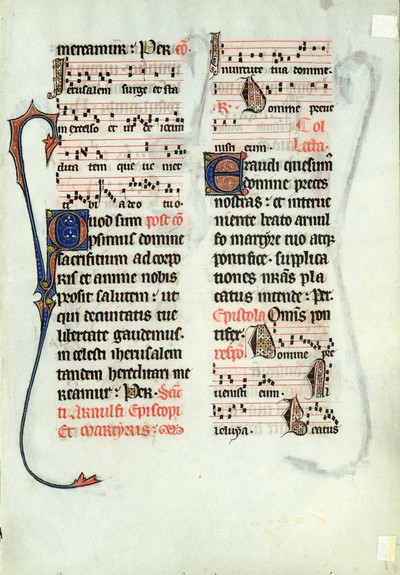 mereamur: Per cō.
Jerusalem surge et sta
in excelso et vi de iocun
dita tem que ve niet
ti bi a deo tu o.
Quod sum post cō
psimus domine
sacrificium ad corpo
ris et anime nobis
prosit salutem: ut
qui tue
libertate gaudemus.
in celesti iherusalem
tandem hereditari me
reamur: Per. Sāc
ti Arnulfi Episcopi
Et Martyris:
In virtute tua domine.
R. Domine preve
nisti eum. Col
lecta.
Exaudi quesumˢ
domine preces
nostras: et interve
niente beato arnul
fo martyre tuo atqꝫ
pontifice. supplica
tiones nr̄as pla
catus intende: Per.
Epistola Om̄s pon
tifex.
respō. Domine pre
venisti eum. Al
leluya. Beatus